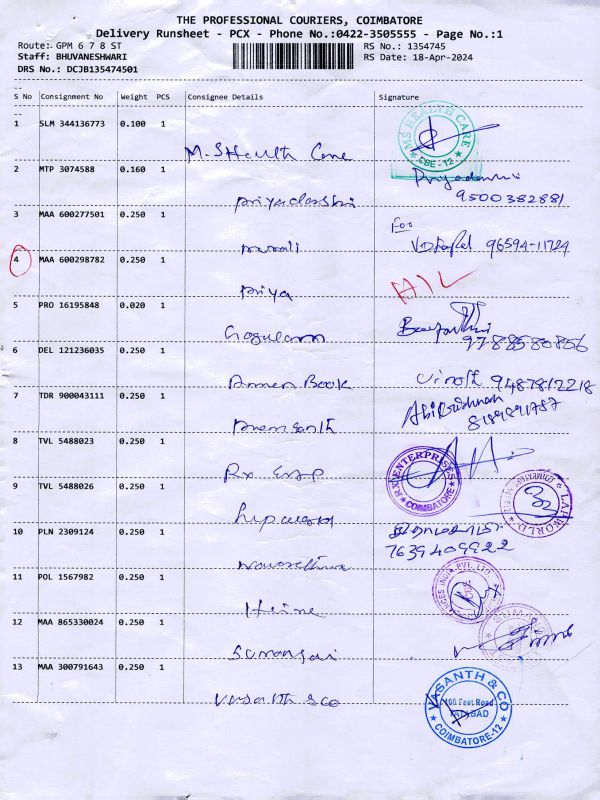 THE PROFESSIONAL COURIERS, COIMBATORE
Delivery Runsheet - PCX - Phone No.:0422-3505555 - Page No.:1
Route: GPM 6 7 8 ST
RS No.: 1354745
Staff: BHUVANESHWARI
RS Date: 18-Apr-2024
DRS No.: DCJB135474501
S No Consignment No Weight PCS Consignee Details Signature
1 SLM 344136773 0.100 1
M.S Health Care
MS HEALTH CARE
CBE-12
2 MTP 3074588 0.160 1
Priyadarshi
9500382881
3 MAA 600277501 0.250 1
For
96594-11724
4 MAA 600298782 0.250 1
Priya
5 PRO 16195848 0.020 1
Gogulam
9788580856
6 DEL 121236035 0.250 1
Book
Vinoth 9487812218
7 TDR 900043111 0.250 1
Abikrishnan
8 TVL 5488023 0.250 1
Rx Entp
RX ENTERPRISES
COIMBATORE
9 TVL 5488026 0.250 1
10 PLN 2309124 0.250 1
7639409922
11 POL 1567982 0.250 1
Heine
12 MAA 865330024 0.250 1
13 MAA 300791643 0.250 1
Vasanth & co
VASANTH & CO
100 Feet Road
TATABAD
COIMBATORE-12